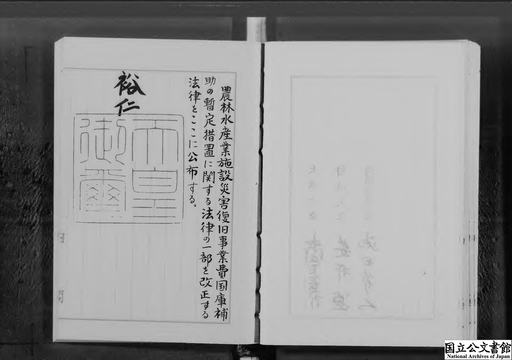 農林水産業施設災害復旧事業費国庫補
助の暫定措置に関する法律の一部を改正する
法律をここに公布する。
裕仁
天皇
御璽
国立公文書館
National Archives of Japan